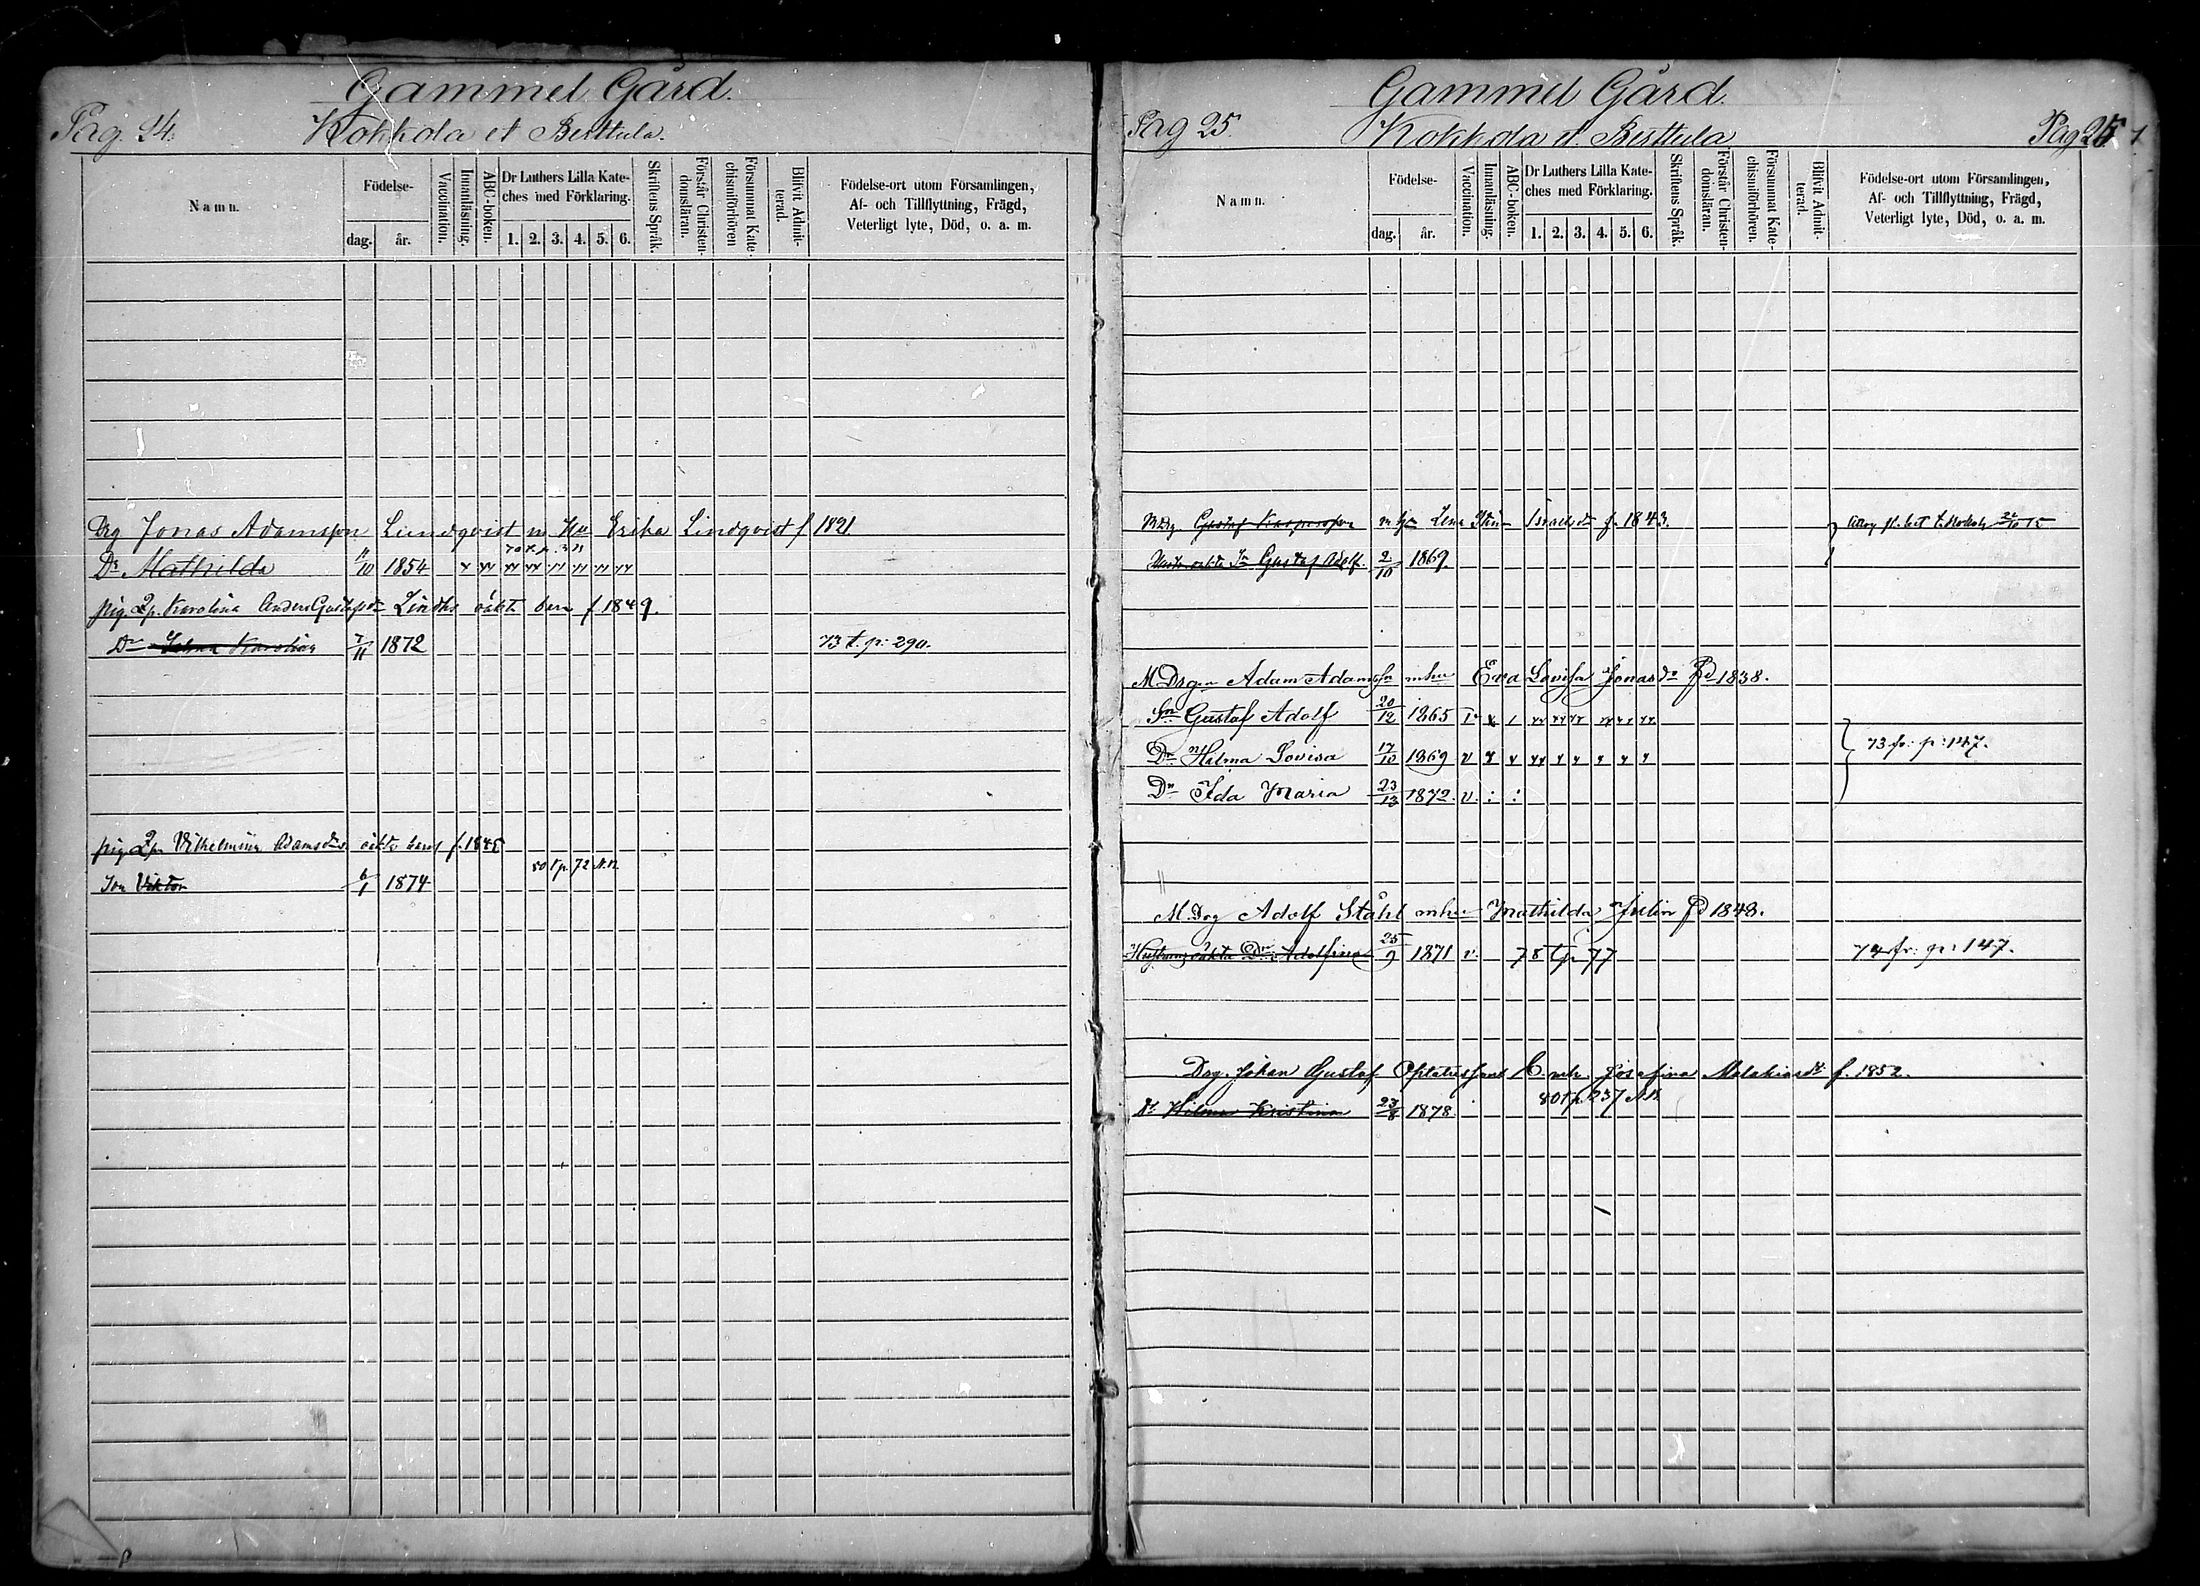 Gammel Gård.
Pag. 24.
Kokkola et Berttula.
Namn.
Födelse-
dag.
år.
Vaccination.
Innanläsning.
ABC-boken.
Dr Luthers Lilla Kate-
ches med Förklaring.
1. 2. 3. 4. 5. 6.
Skriftens Språk.
Förstår Christen-
domsläran.
Försummat Kate-
chismiförhören
Blifvit Admit-
terad.
Födelse-ort utom Församlingen,
Af- och Tillflyttning, Frägd,
Veterligt lyte, Död, o. a. m.
Drg Jonas Adamsson Lundqvist m Hu Erika Lindqvist f 1821.
Dr Mathilda 11/10 1854
pig. Karolina Anders Gustafsdr Lindhs oäkta barn f 1849.
Dr Selma Karolina 7/11 1872 73 t. p: 290.
pig. Vilhelmina Adamsdr oäkta barn f. 1845
80 t p. 72 N.B.
Son Viktor 6/1 1874
Gammel Gård.
Pag 25
Kokkola et Berttula
Pag 25
Namn.
Födelse-
dag.
år.
Vaccination.
Innanläsning.
ABC-boken.
Dr Luthers Lilla Kate-
ches med Förklaring.
1. 2. 3. 4. 5. 6.
Skriftens Språk.
Förstår Christen-
domsläran.
Försummat Kate-
chismiförhören.
Blifvit Admit-
terad.
Födelse-ort utom Församlingen,
Af- och Tillflyttning, Frägd,
Veterligt lyte, Död, o. a. m.
M Drg. Gustaf Kaspersson m h Lena Israelsdr f. 1843.
oäkta Sn Gustaf Adolf. 2/10 1869.
M Drgen Adam Adamsson mhu Eva Lovisa Jonasdr Fd 1838.
Sn Gustaf Adolf 20/12 1865 v
Dr Halma Lovisa 17/10 1869 v 73 fr: p: 147.
Dr Ida Maria 23/12 1872. v. : :
M. Drg Adolf Ståhl mhu Mathilda Julin Fd 1848.
Hustruns oäkta Dr Adolfina 25/9 1871 v. 78 t p 77 74 fr: p: 147.
Drg. Johan Gustaf mh. Josefina Malakiasdr f. 1852.
80 t p. 237 N.B.
Dr Hilma Kristina 23/8 1878.